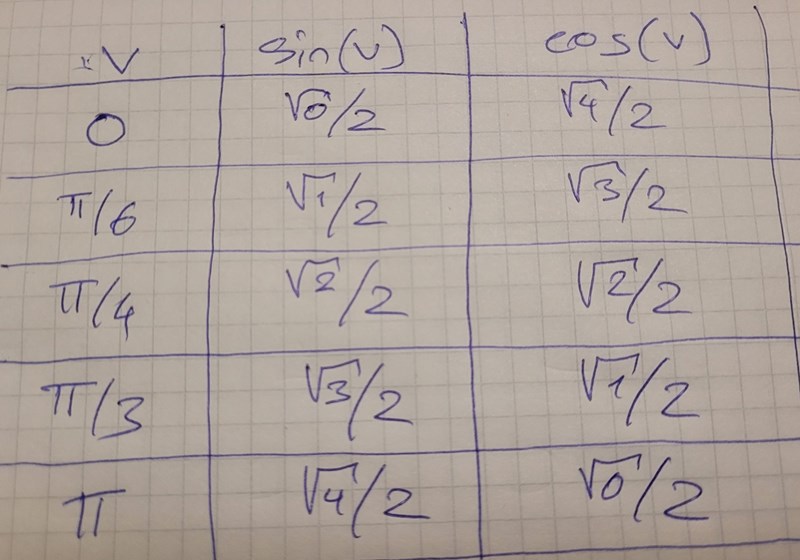 v sin(v) cos(v)
0 √0/2 √4/2
π/6 √1/2 √3/2
π/4 √2/2 √2/2
π/3 √3/2 √1/2
π √4/2 √0/2